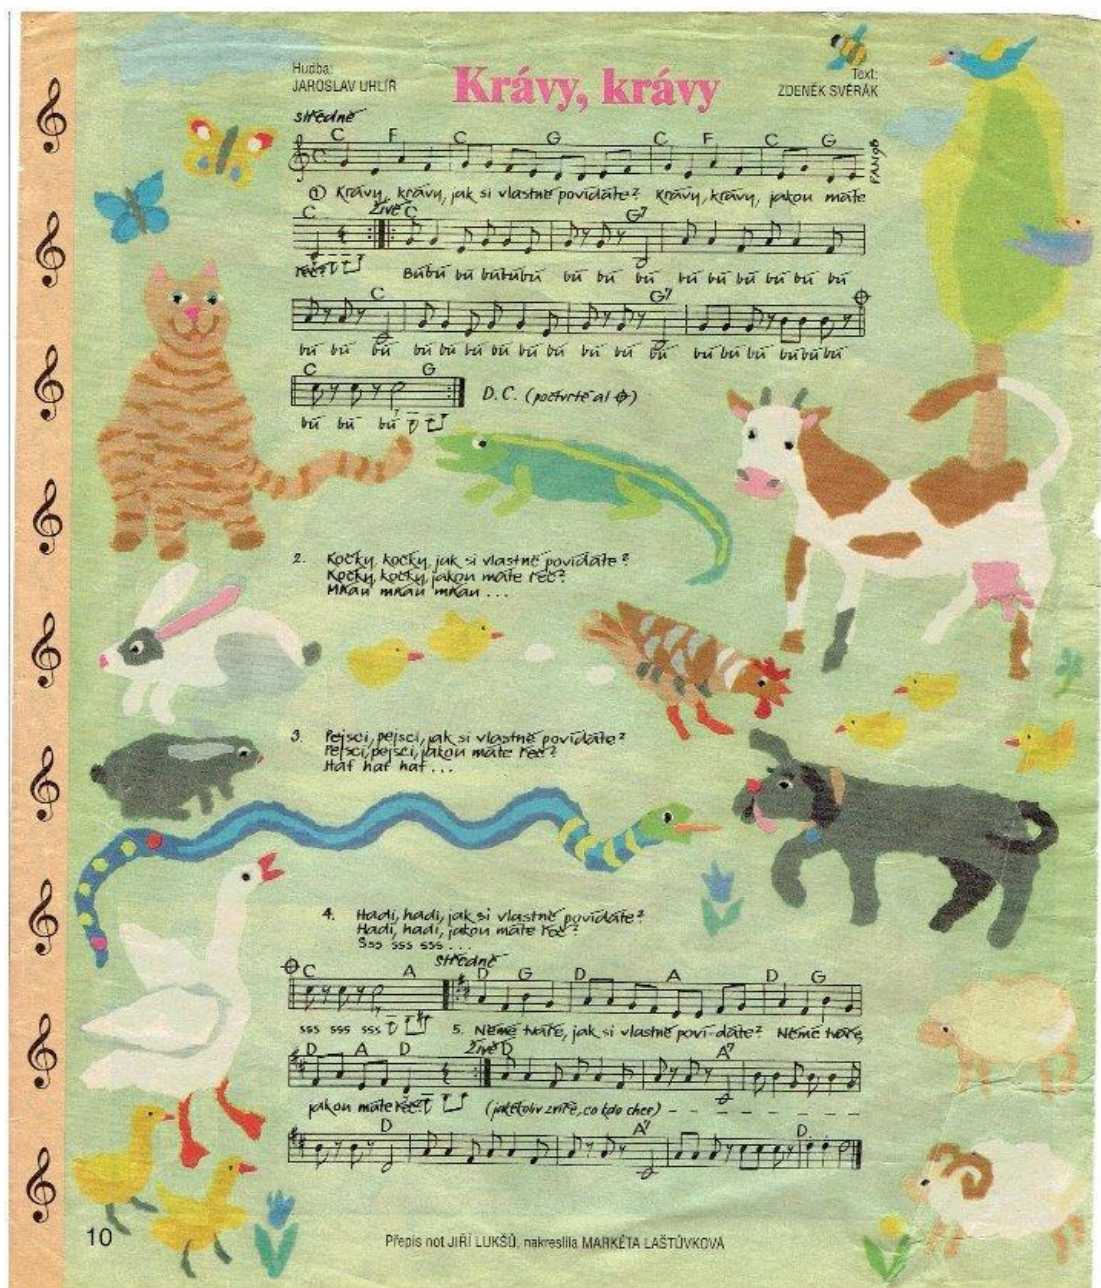 Hudba:
JAROSLAV UHLÍŘ
Krávy, krávy
Text:
ZDENĚK SVĚRÁK
středně
C F C G C F C G
PAN98
① Krávy, krávy, jak si vlastně povídáte? Krávy, krávy, jakou máte
C živě C G7
řeč? Bůbů bů bůbůbů bů bů bů bů bů bů bů bů bů
C G7
bů bů bů bů bů bů bů bů bů bů bů bů bů bů bů bůbůbů
C G
D.C. (počtvrté al)
bů bů bů
2. Kočky, kočky, jak si vlastně povídáte?
Kočky, kočky, jakou máte řeč?
Mňau mňau mňau ...
3. Pejsci, pejsci, jak si vlastně povídáte?
Pejsci, pejsci, jakou máte řeč?
Haf haf haf ...
4. Hadi, hadi, jak si vlastně povídáte?
Hadi, hadi, jakou máte řeč?
Sss sss sss ...
středně
C A D G D A D G
sss sss sss 5. Němé tváře, jak si vlastně poví-dáte? Němé tváře,
D A D živě D A7
jakou máte řeč? (jakékoliv zvíře, co kdo chce) - - - - - - -
D A7 D
10
Přepis not JIŘÍ LUKŠŮ, nakreslila MARKÉTA LAŠTŮVKOVÁ